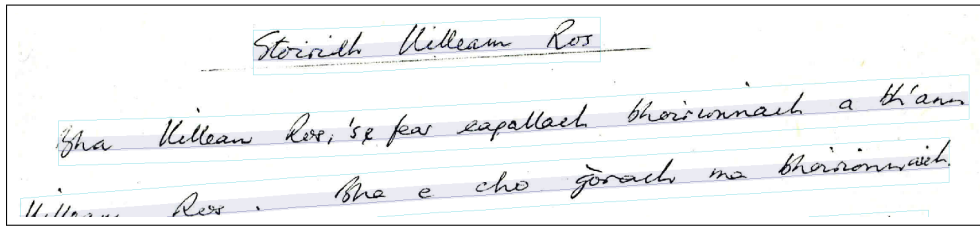 Stoiridh Uilleam Ros
Bha Uilleam Ros, 'se fear eagallach bhoirionnach a bh'ann
Uilleam Ros. Bha e cho gòrach ma bhoirionnaich.